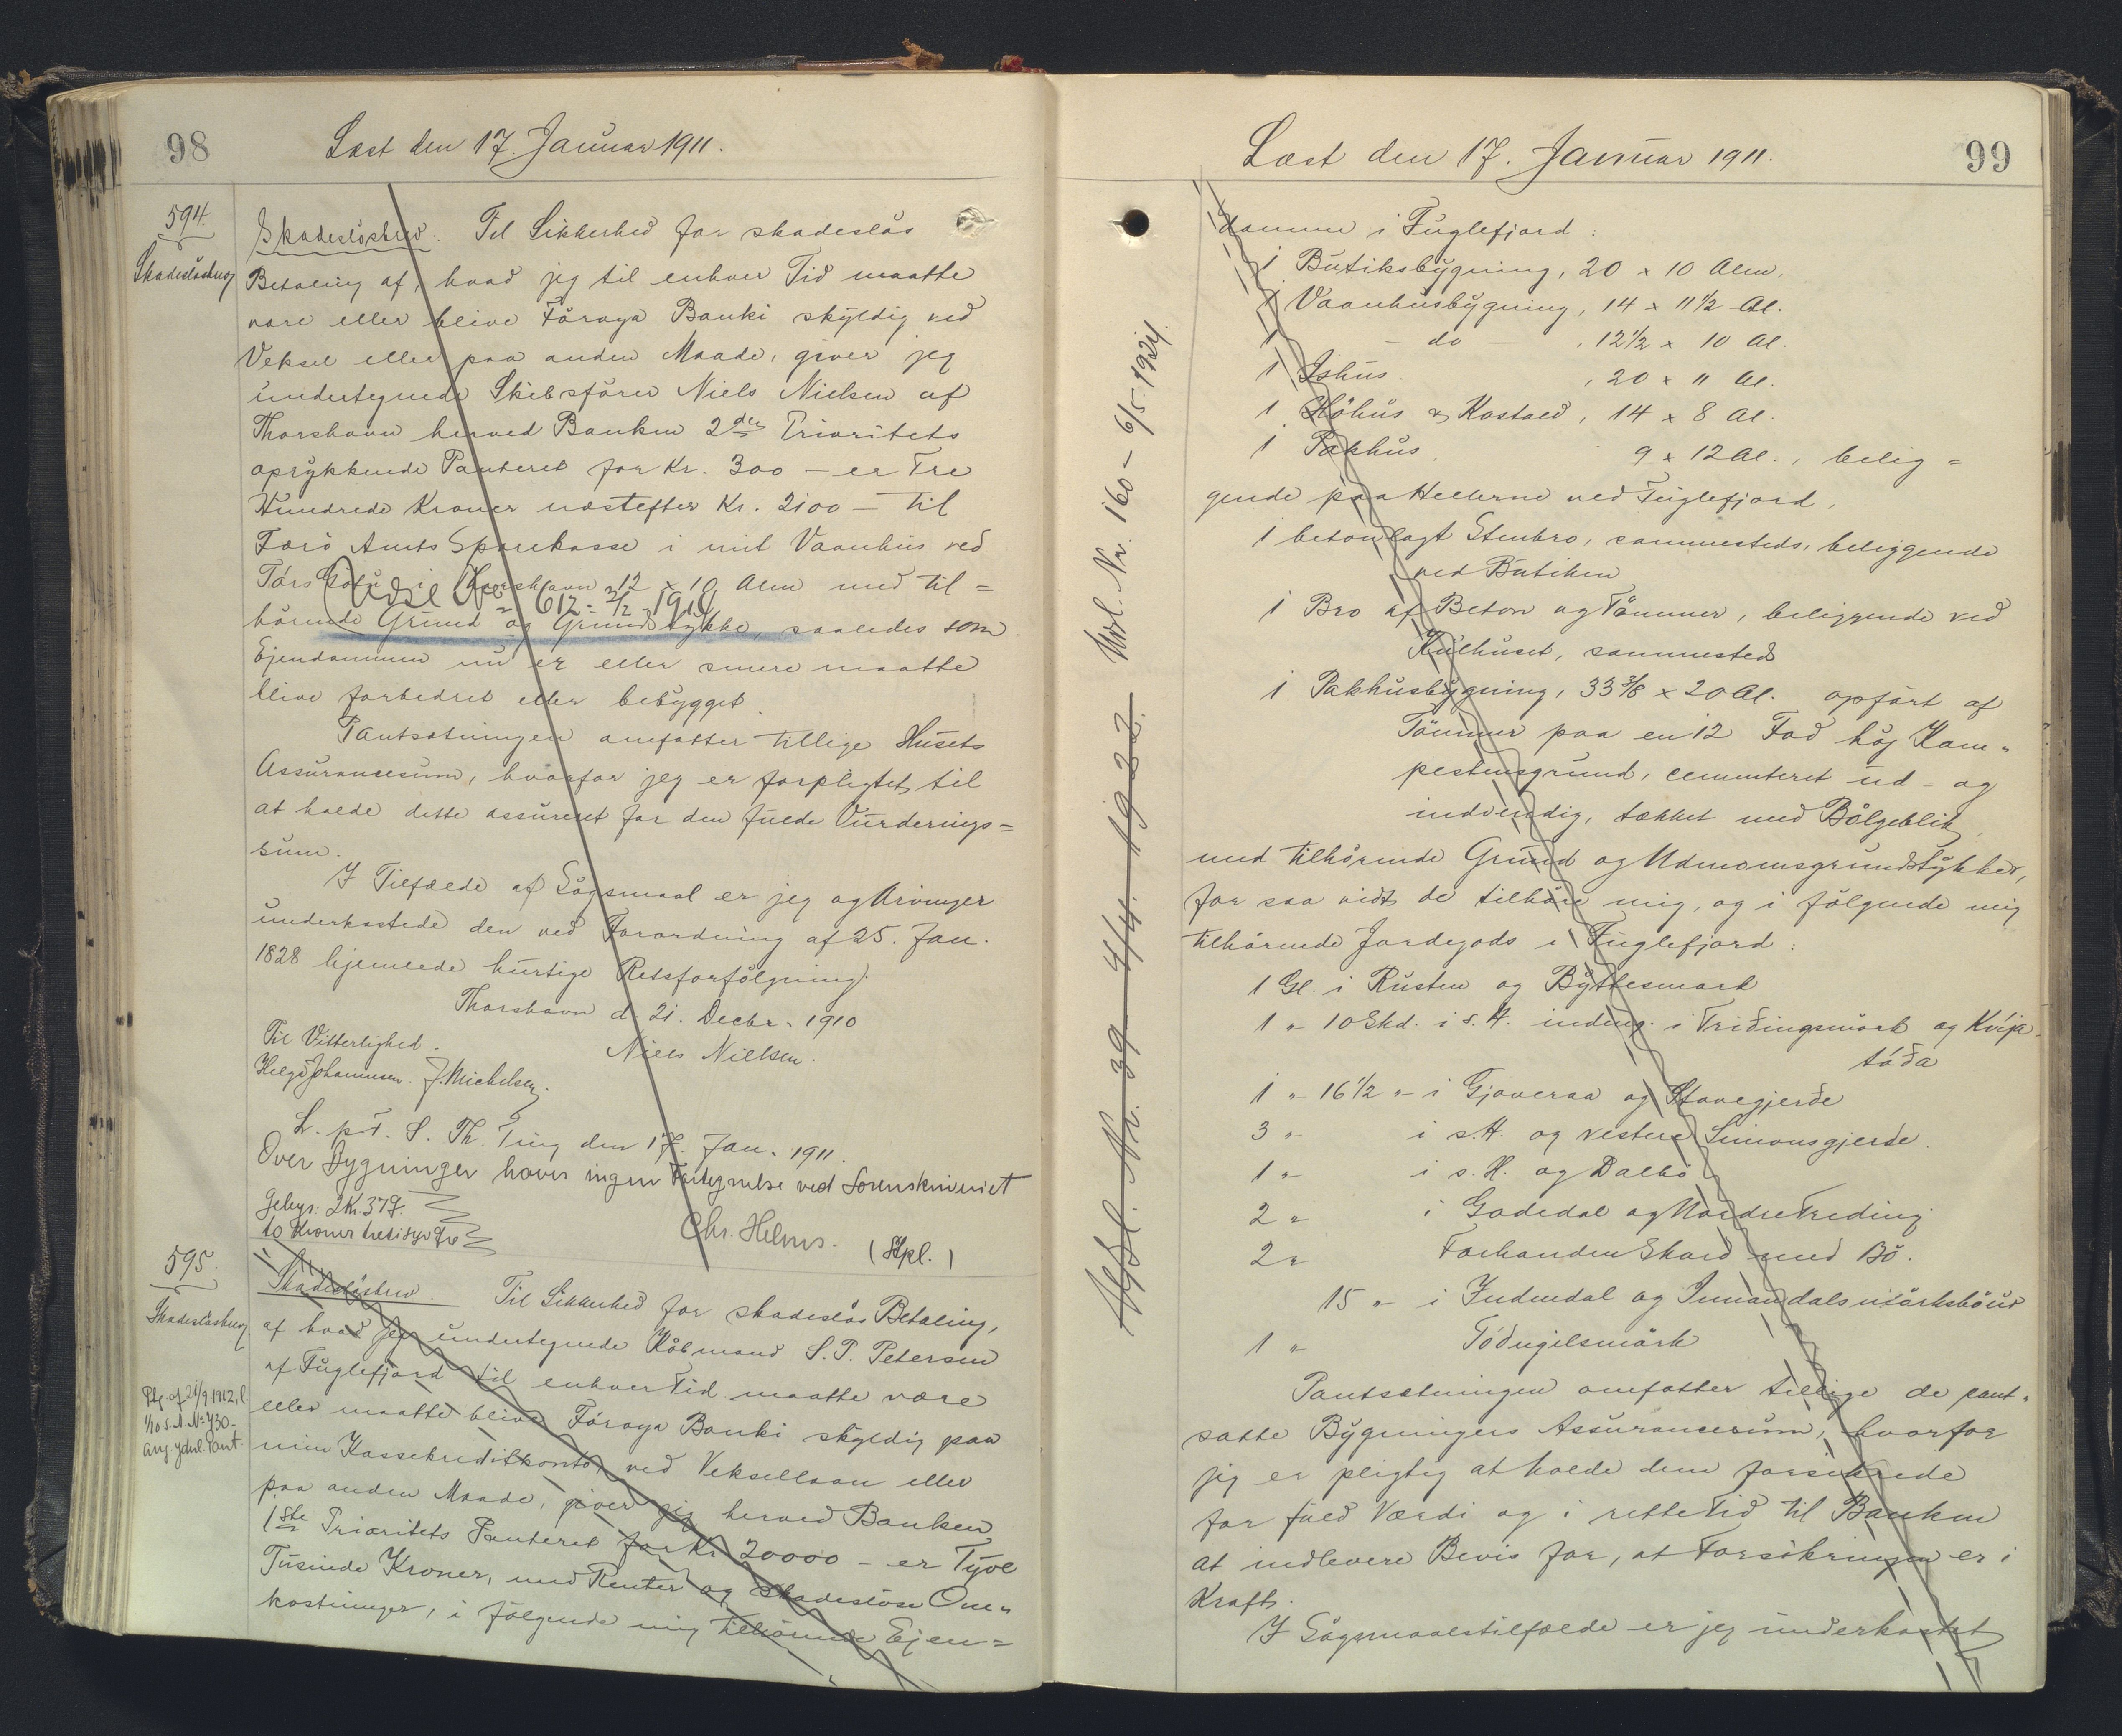 98
Læst den 17. Januar 1911.
594.
Skadesløsbrev
Skadesløsbrev. Til Sikkerhed for skadesløs
Betaling af, hvad jeg til enhver Tid maatte
være eller blive Føroya Banki skyldig ved
Veksel eller paa anden Maade, giver jeg
undertegnede Skibsfører Niels Nielsen af
Thorshavn herved Banken 2den Prioritets
oprykkende Panteret for Kr. 300 - er Tre
Hundrede Kroner næstefter Kr. 2100 - til
Færø Amts Sparekasse i mit Vaanhus ved
Tórs Gøtu i Thorshavn 12 x 10 Alen med til=
Udsl. 612 - 2/2 - 1914
hørende Grund og Grundstykke, saaledes som
Ejendommen nu er eller senere maatte
blive forbedret eller bebygget.
Pantsætningen omfatter tillige Husets
Assurancesum, hvorfor jeg er forpligtet til
at holde dette assureret for den fulde Vurderings=
sum.
I Tilfælde af Søgsmaal er jeg og Arvinger
underkastede den ved Forordning af 25. Jan.
1828 hjemlede hurtige Retsforfølgning.
Thorshavn d. 21. Decbr. 1910
Til Vitterlighed.
Niels Nielsen.
Helge Johannesen. J. Michelsen.
L. p. d. S. Th. Ting den 17. Jan. 1911.
Over Bygninger haves ingen Fortegnelse ved Sorenskriveriet
Gebyr: 2 Kr. 37 Ø.
to Kroner tretisyv Øre
Chr. Helms.
(Stpl.)
595.
Skadesløsbrev
Skadesløsbrev. Til Sikkerhed for skadesløs Betaling,
af hvad jeg undertegnede Købmand S. P. Petersen
af Fuglefjord til enhver Tid maatte være
eller maatte blive Føroya Banki skyldig paa
Ptg. af 21/9 1912, l.
1/10 s. A. No 730 -
ang. ydrl. Pant.
min Kassekreditkonto, ved Veksellaan eller
paa anden Maade, giver jeg herved Banken
1ste Prioritets Panteret for Kr. 20000 - er Tyve
Tusinde Kroner, med Renter og skadesløse Om=
kostninger, i følgende mig tilhørende Ejen=
99
Læst den 17. Januar 1911.
Afsl. Nr. 39 - 4/4. 1922. Udsl. Nr. 160 - 6/5. 1924.
domme i Fuglefjord:
1 Butiksbygning, 20 x 10 Alen,
1 Vaanhusbygning, 14 x 11 1/2 Al.
1 - do - , 12 1/2 x 10 Al.
1 Ishus. , 20 x 11 Al.
1 Høhus & Kostald, 14 x 8 Al.
1 Pakhus, 9 x 12 Al., belig=
gende paa Hellerne ved Fuglefjord,
1 betonlagt Stenbro, sammesteds, beliggende
ved Butiken
1 Bro af Beton og Tømmer, beliggende ved
Kulhuset, sammesteds
1 Pakhusbygning, 33 3/8 x 20 Al. opført af
Tømmer paa en 12 Fod høj Kam=
pestensgrund, cementeret ud- og
indvendig, tækket med Bølgeblik,
med tilhørende Grund og Udmomsgrundstykker,
for saa vidt de tilhøre mig, og i følgende mig
tilhørende Jordegods i Fuglefjord:
1 Gl. i Rusten og Byttesmark
1 " 10 Skd. i s. H. indmg. i Tridingsmørk og Kvíja-
tóða
1 " 16 1/2 " i Gjoveraa og Stovegjerde
3 " i s. H. og vestere Simonsgjerde.
1 " i s. H. og Dalbø
2 " i Godedal og Nordre Treding
2 " Forhanden Skard med Bø.
15 " i Indendal og Innandalsmørksbøur
1 " Tóðugilsmørk
Pantsætningen omfatter tillige de pant=
satte Bygningers Assurancesum, hvorfor
jeg er pligtig at holde dem forsikrede
for fuld Værdi og i rette Tid til Banken
at indlevere Bevis for, at Forsikringen er i
Kraft.
I Søgsmaalstilfælde er jeg underkastet